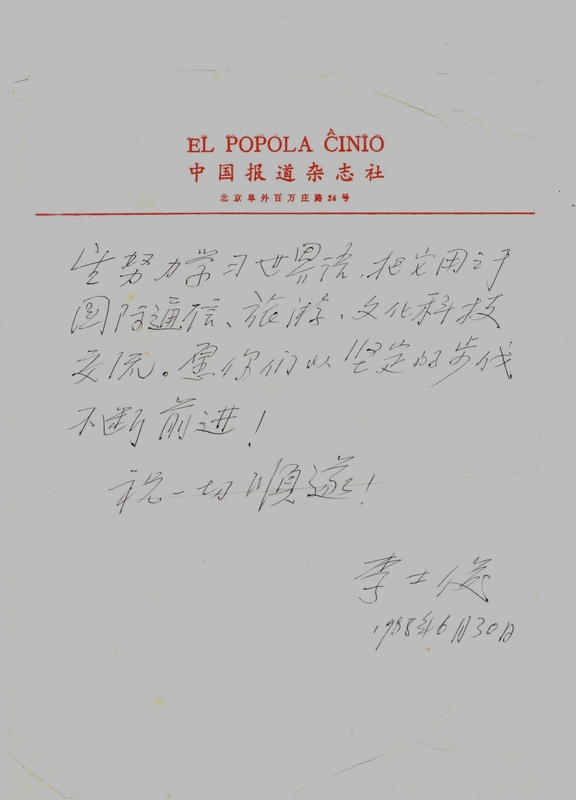 EL POPOLA ĈINIO
中国报道杂志社
北京阜外百万庄路24号
生努力学习世界语，把它用之于
国际通信、旅游、文化科技
交流。愿你们以坚定的步伐
不断前进！
祝一切順遂！
李士俊
1988年6月30日